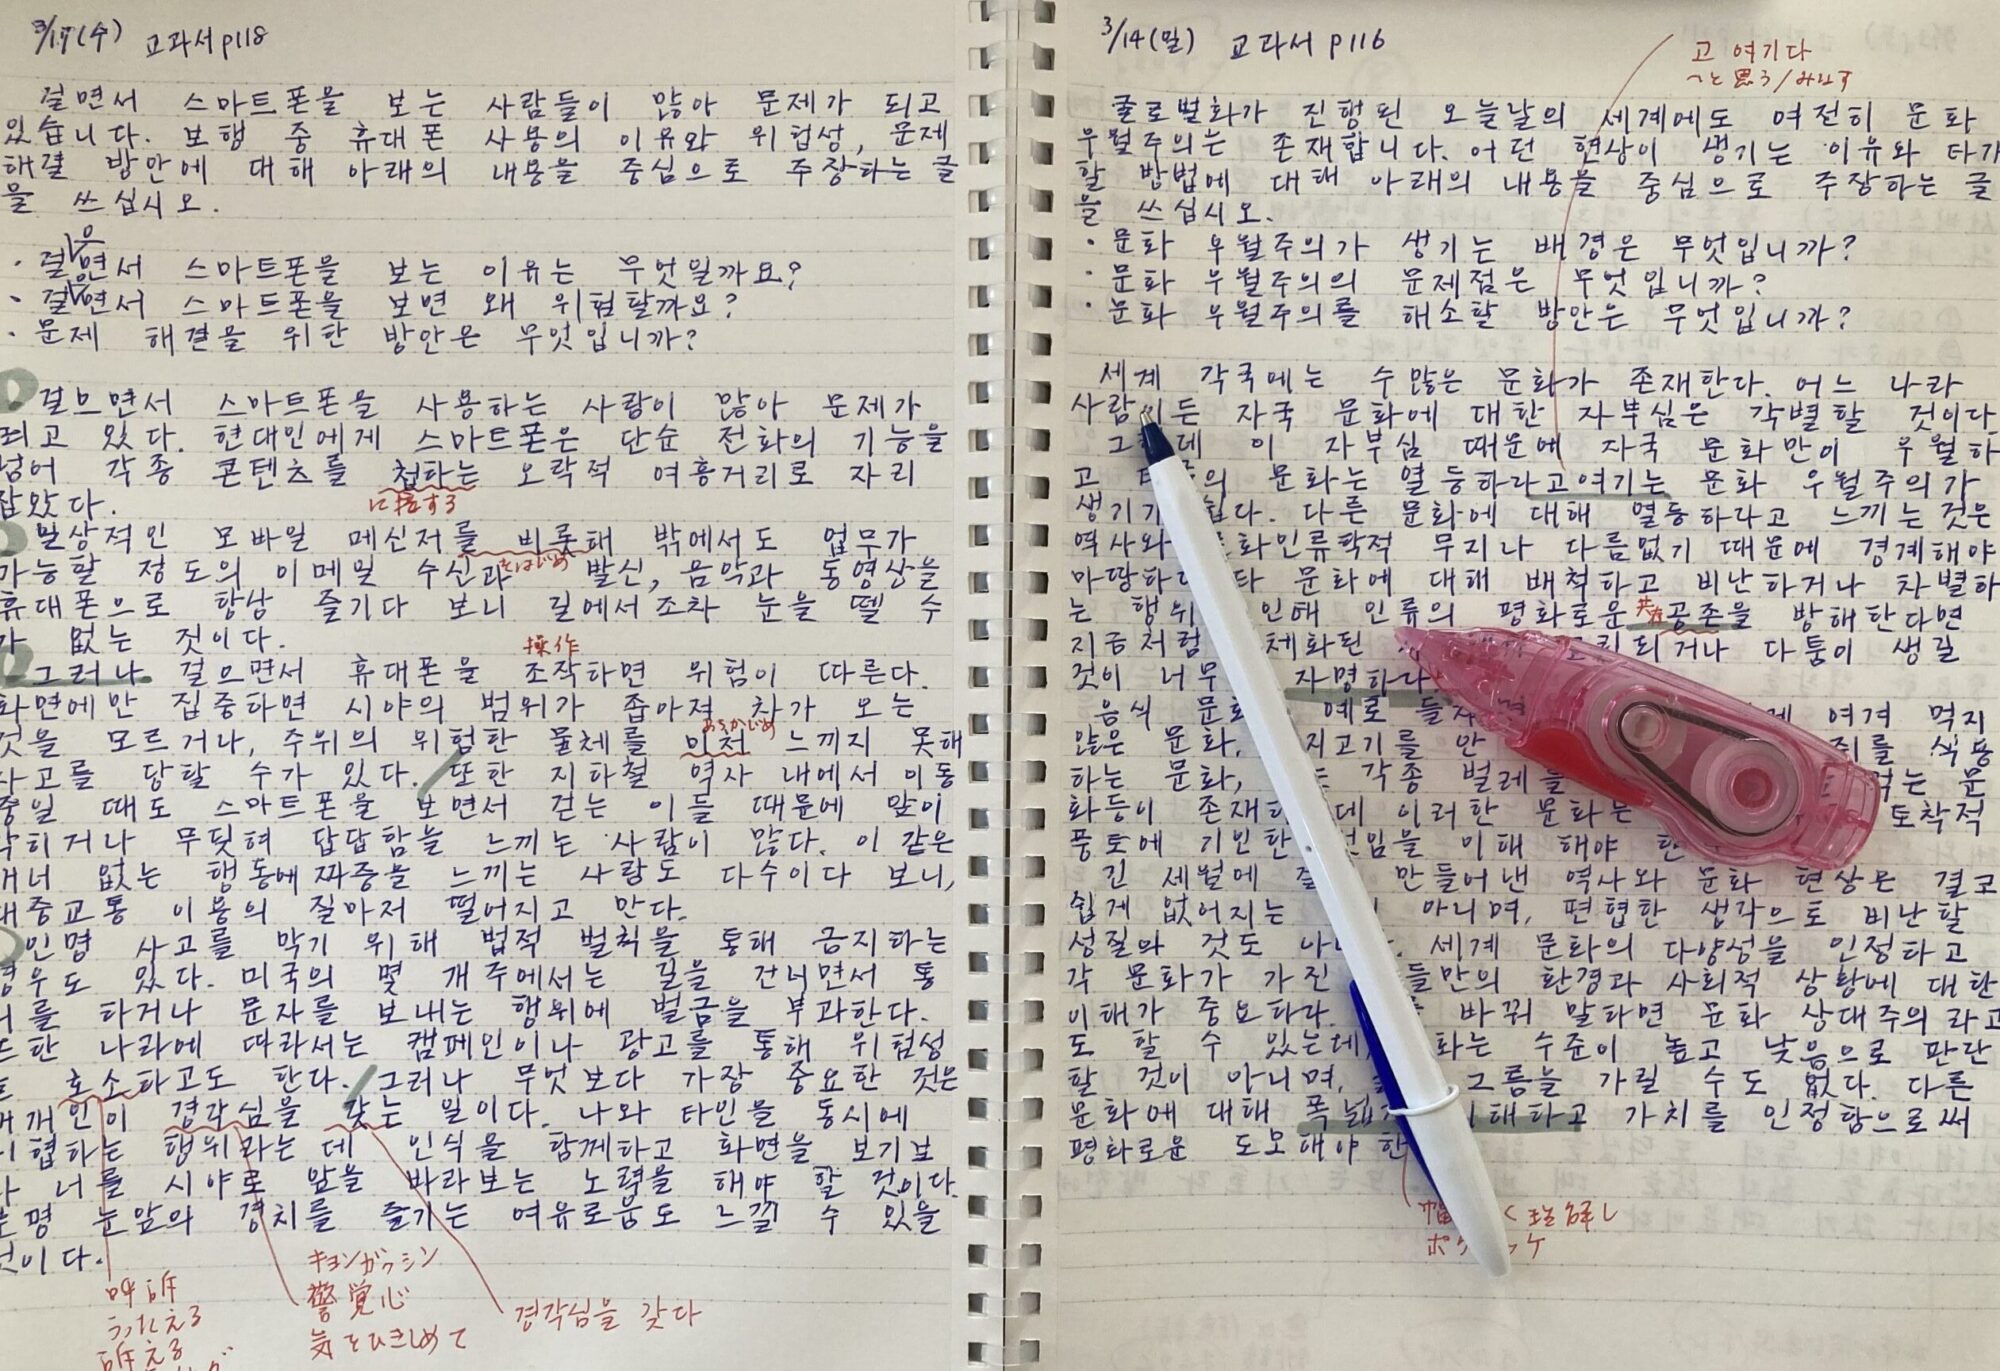 3/17(수) 교과서 p118
걸면서 스마트폰을 보는 사람들이 많아 문제가 되고
있습니다. 보행 중 휴대폰 사용의 이유와 위험성, 문제
해결 방안에 대해 아래의 내용을 중심으로 주장하는 글
을 쓰십시오.
으
· 걸면서 스마트폰을 보는 이유는 무엇일까요?
으
· 걸면서 스마트폰을 보면 왜 위험할까요?
· 문제 해결을 위한 방안은 무엇입니까?
걸으면서 스마트폰을 사용하는 사람이 많아 문제가
되고 있다. 현대인에게 스마트폰은 단순 전화의 기능을
넘어 각종 콘텐츠를 접하는 오락적 여흥거리로 자리
잡았다.
に接する
일상적인 모바일 메신저를 비롯해 밖에서도 업무가
をはじめ
가능할 정도의 이메일 수신과 발신, 음악과 동영상을
휴대폰으로 항상 즐기다 보니 길에서조차 눈을 뗄 수
가 없는 것이다.
操作
그러나 걸으면서 휴대폰을 조작하면 위험이 따른다.
화면에만 집중하면 시야의 범위가 좁아져 차가 오는
あらかじめ
것을 모르거나, 주위의 위험한 물체를 먼저 느끼지 못해
사고를 당할 수가 있다. 또한 지하철 역사 내에서 이동
중일 때도 스마트폰을 보면서 걷는 이들 때문에 앞이
막히거나 무딪혀 답답함을 느끼는 사람이 많다. 이 같은
매너 없는 행동에 짜증을 느끼는 사람도 다수이다 보니,
대중교통 이용의 질마저 떨어지고 만다.
인명 사고를 막기 위해 법적 벌칙을 통해 금지하는
경우도 있다. 미국의 몇 개주에서는 길을 건너면서 통
를 하거나 문자를 보내는 행위에 벌금을 부과한다.
또한 나라에 따라서는 캠페인이나 광고를 통해 위험성
호소하고도 한다. 그러나 무엇보다 가장 중요한 것은
개개인이 경각심을 갖는 일이다. 나와 타인을 동시에
위협하는 행위라는 데 인식을 함께하고 화면을 보기보
다 너를 시야로 앞을 바라보는 노력을 해야 할 것이다.
분명 눈앞의 경치를 즐기는 여유로움도 느낄 수 있을
것이다.
呼訴
うったえる
訴える
キョンガクシン
警覚心
気をひきしめて
경각심을 갖다
3/14(일) 교과서 p116
고 여기다
〜と思う/みなす
글로벌화가 진행된 오늘날의 세계에도 여전히 문화
우월주의는 존재합니다. 어떤 현상이 생기는 이유와 타개
할 방법에 대해 아래의 내용을 중심으로 주장하는 글
을 쓰십시오.
· 문화 우월주의가 생기는 배경은 무엇입니까?
· 문화 우월주의의 문제점은 무엇입니까?
· 문화 우월주의를 해소할 방안은 무엇입니까?
세계 각국에는 수많은 문화가 존재한다. 어느 나라
사람이든 자국 문화에 대한 자부심은 각별할 것이다.
그 데 이 자부심 때문에 자국 문화만이 우월하
고 의 문화는 열등하라고여기는 문화 우월주의가
생기기 다. 다른 문화에 대해 열등하라고 느끼는 것은
역사와 화인류학적 무지나 다름없기 때문에 경계해야
마땅하다 다 문화에 대해 배척하고 비난하거나 차별하
는 행위 인해 인류의 평화로운 공존을 방해한다면
共存
지금처럼 체화된 되거나 다툼이 생길
것이 너무 자명하다.
음식 문화 예로 들 여겨 먹지
않은 문화, 지고기를 안 를 식용
하는 문화, 각종 벌레를 먹는 문
화등이 존재하 데 이러한 문화는 토착적
풍토에 기인한 것임을 이해 해야 한
긴 세월에 걸 만들어낸 역사와 문화 현상은 결코
쉽게 없어지는 아니며, 편협한 생각으로 비난할
성질의 것도 아니 세계 문화의 다양성을 인정하고
각 문화가 가진 들만의 환경과 사회적 상황에 대한
이해가 중요하다. 바꿔 말하면 문화 상대주의라고
도 할 수 있는데 화는 수준이 높고 낮음으로 판단
할 것이 아니며, 그름을 가릴 수도 없다. 다른
문화에 대해 폭넓 이해하고 가치를 인정함으로써
평화로운 도모해야 한
く理解し